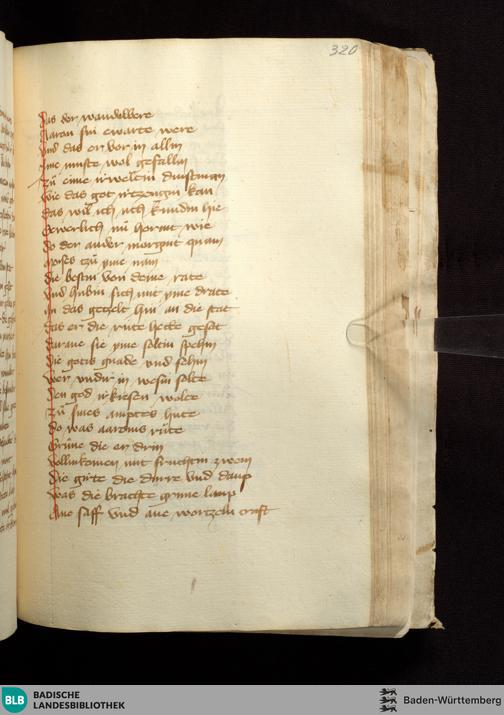 320
Das der wandelbere
Aaron sin ewarte were
Vnd das er vor in allin
Ime muste wol gefallin
Zu eime irweltin dinstman
Wie das got irtzougin kan
Das wil ich uch kundin hie
Gewerlich nu horint wie
Do der ander morgint quam
Moses tzu yme nam
Die bestin von deme rate
Vnd hubin sich mit yme drate
In das getzelt hin an die stat
Das er die rute hette gesat
Darane sie yme soltin spehin
Die gotis gnade vnd sehin
Wer vndir in wesin solte
Den god irkiesen wolte
Zu sines amptes hute
Do was aarons rute
Grune die er drin
Vollinkomen mit fruchtin zwein
Die girte die durre vnd daup
Was die brachte grune laup
Ane saff vnd ane wortzeln craft
BLB
BADISCHE
LANDESBIBLIOTHEK
Baden-Württemberg